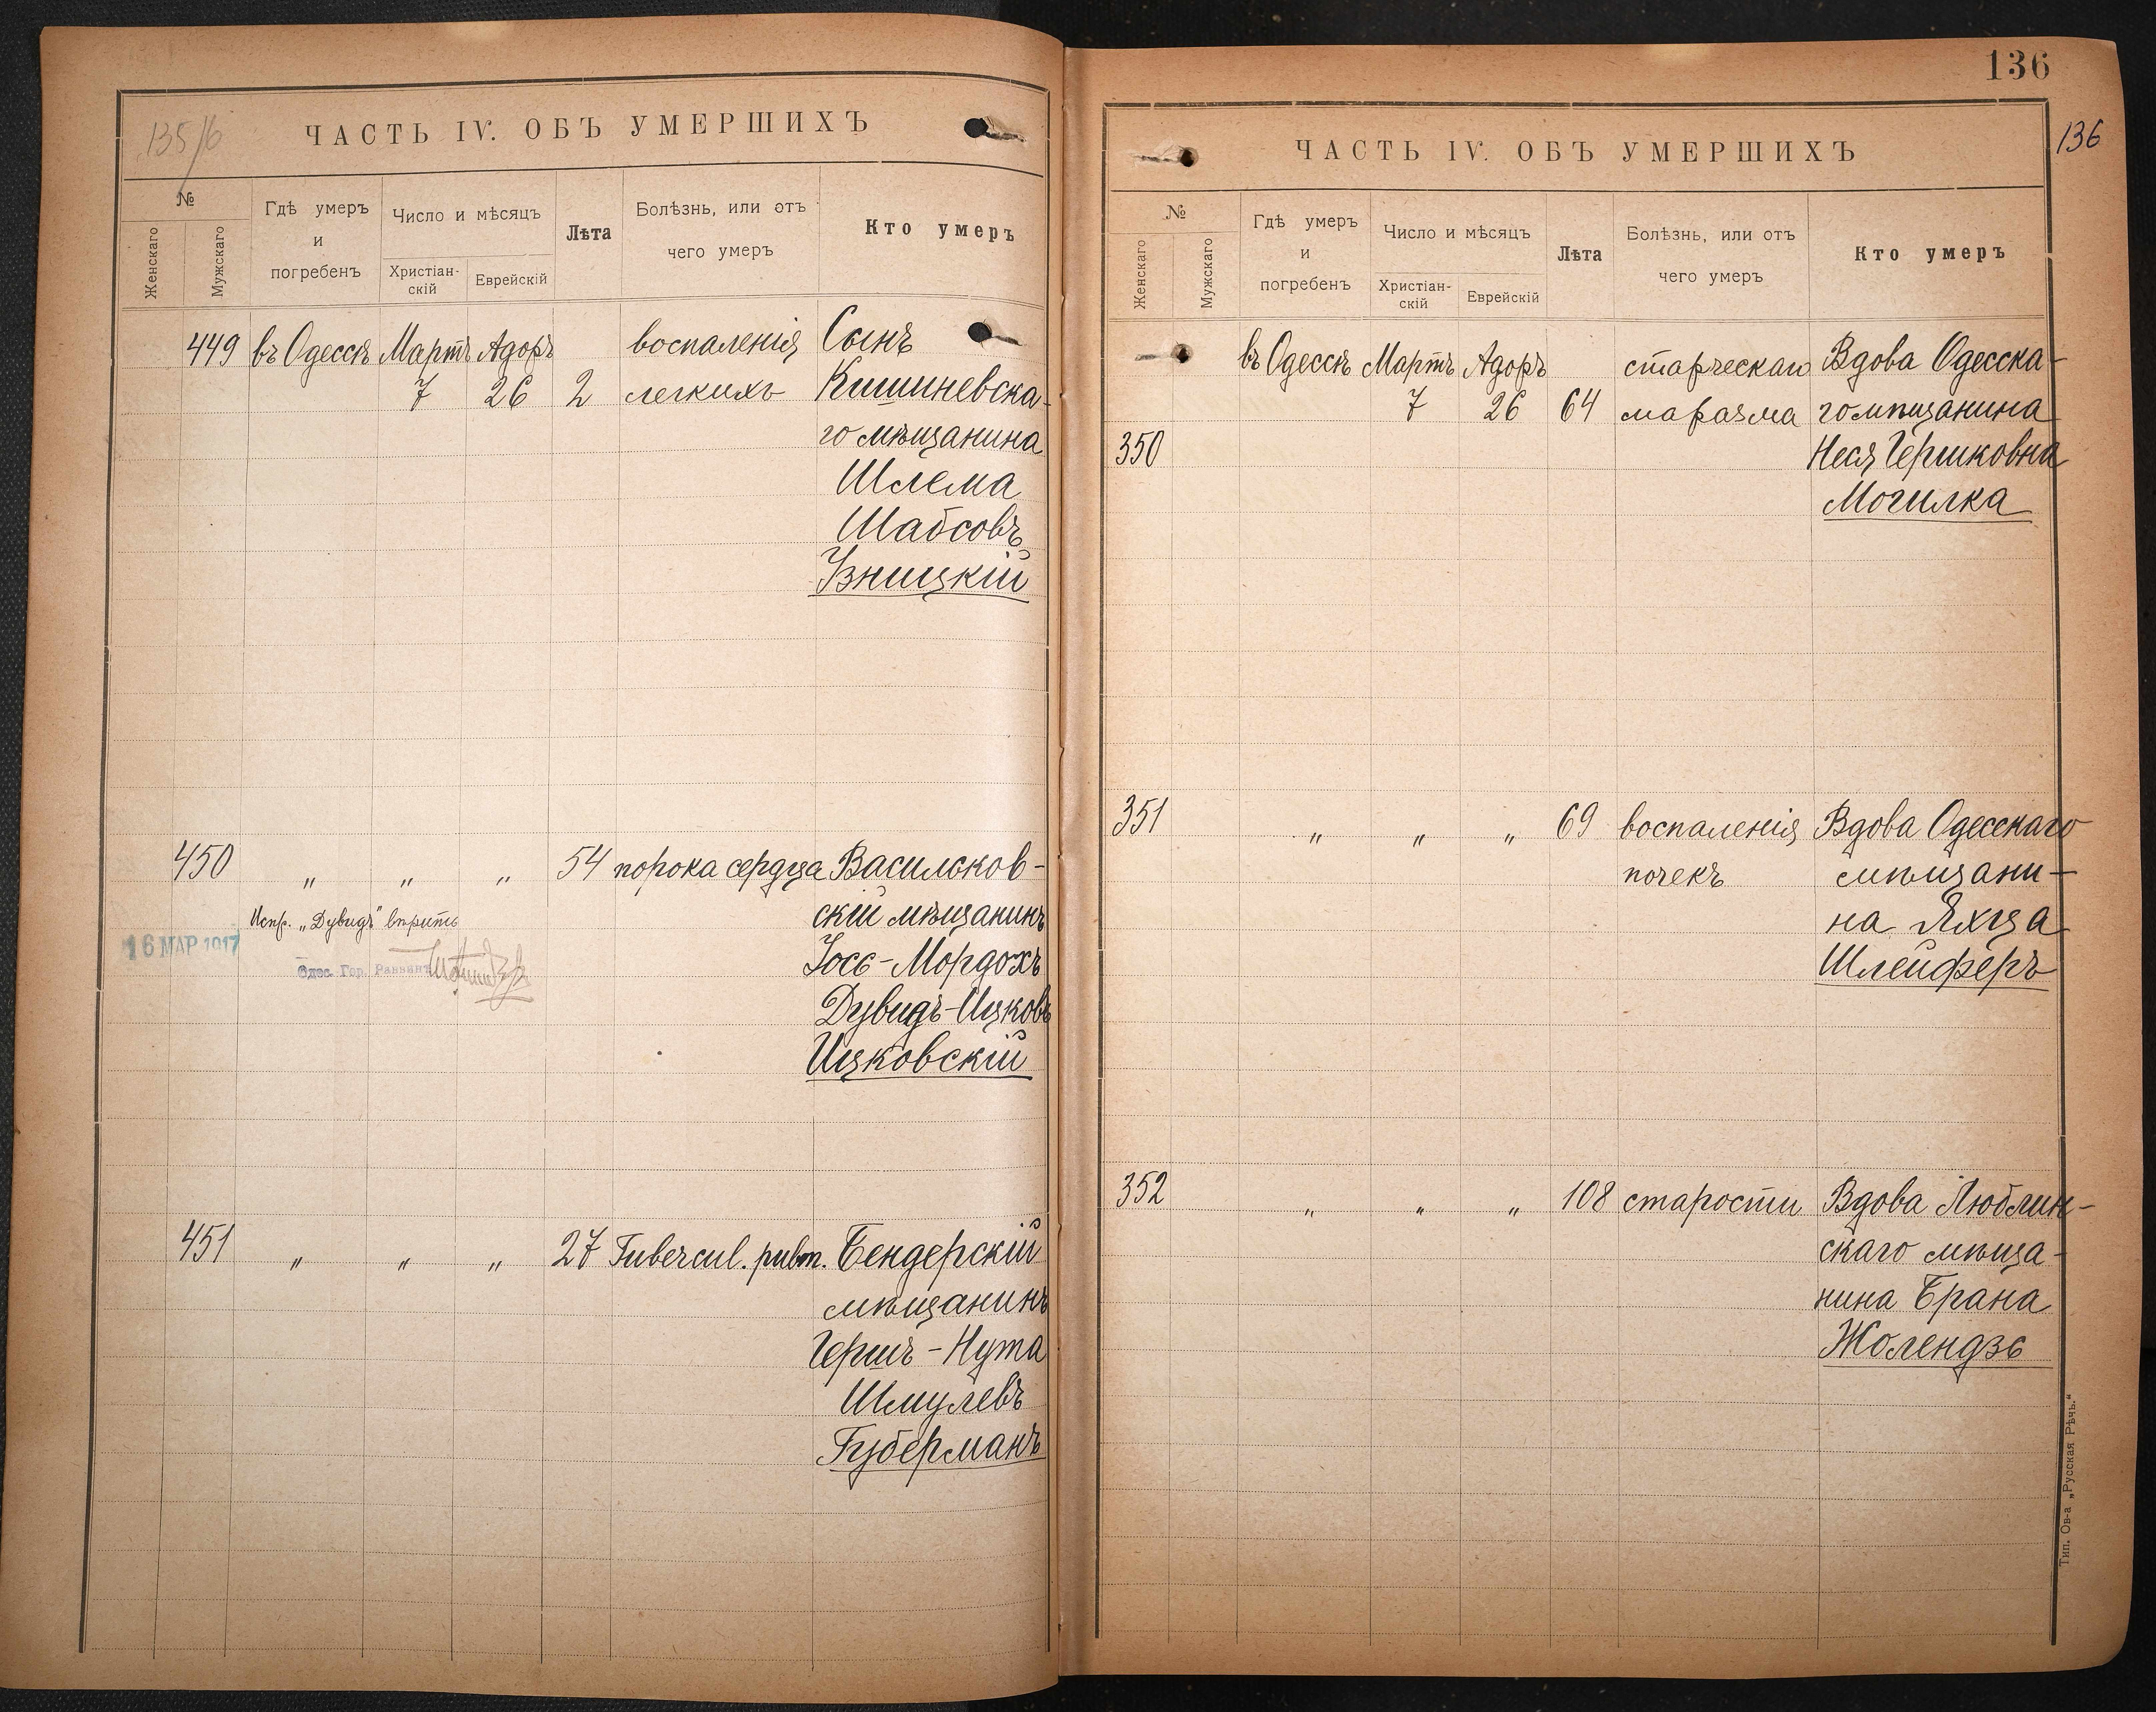 135/6
ЧАСТЬ IV. ОБЪ УМЕРШИХЪ
№
Женскаго
Мужскаго
Гдѣ умеръ
и
погребенъ
Число и мѣсяцъ
Христіан-
скій
Еврейскій
Лѣта
Болѣзнь, или отъ
чего умеръ
Кто умеръ
449 въ Одессѣ Мартъ Адоръ воспаленія Сынъ
7 26 2 легкихъ Кишиневска-
го мѣщанина
Шлема
Шабсовъ
Узницкій
450 " " " 54 порока сердца Васильков-
Испр. „Дувидъ" вѣрить скій мѣщанинъ
16 МАР 1917
Одес. Гор. Раввинъ Іосе-Мордохъ
Дувидъ-Ицковъ
Ицковскій
451 " " " 27 Tubercul. pulm. Бендерскій
мѣщанинъ
Гершъ-Нута
Шмулевъ
Губерманъ
136
136
ЧАСТЬ IV. ОБЪ УМЕРШИХЪ
№
Женскаго
Мужскаго
Гдѣ умеръ
и
погребенъ
Число и мѣсяцъ
Христіан-
скій
Еврейскій
Лѣта
Болѣзнь, или отъ
чего умеръ
Кто умеръ
въ Одессѣ Мартъ Адоръ старческаго Вдова Одесска-
7 26 64 маразма го мѣщанина
350 Неся Гершковна
Могилка
351 " " " 69 воспаленія Вдова Одесскаго
почекъ мѣщани-
на Яхца
Шлейферъ
352 " " " 108 старости Вдова Люблин-
скаго мѣща-
нина Брана
Жолендзе
Тип. Ов-а „Русская Рѣчь."